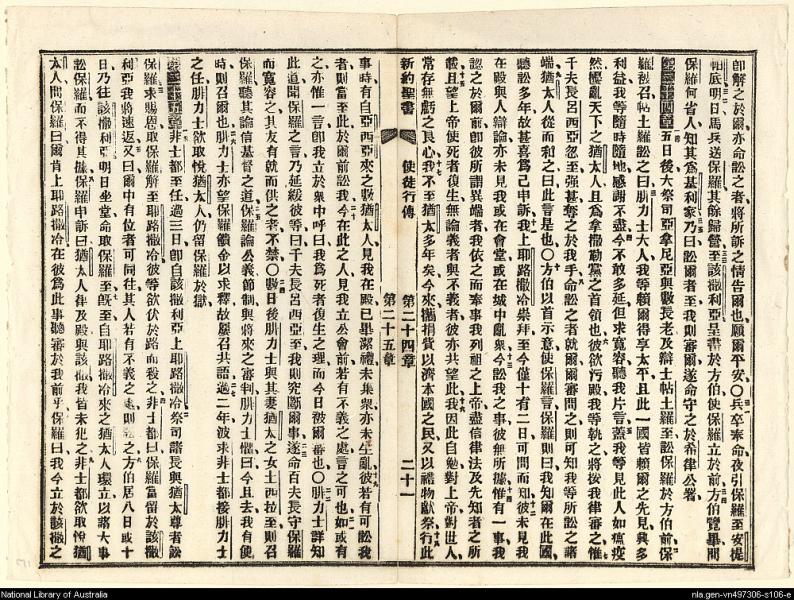 卽解之於爾亦命訟之者將所訴之情告爾也願爾平安〇兵卒奉命夜引保羅至安提
帕底明日馬兵送保羅其餘歸營至該撒利亞呈書於方伯使保羅立於前方伯覽畢問
保羅何省人知其爲基利家乃曰訟爾者至我則審爾遂命守之於希律公署
第二十四章 五日後大祭司亞拿尼亞與數長老及辯士帖土羅至訟保羅於方伯前保
羅被召帖土羅訟之曰腓力士大人我等賴爾得享太平且此一國皆賴爾之先見興多
利益我等隨時隨地感謝不盡今不敢多延但求寬容聽我片言蓋我等見此人如瘟疫
然慨亂天下之猶太人且爲拿撒勒黨之首領也彼欲污殿我等執之將按我律審之惟
千夫長呂西亞忽至强甚奪之於我手命訟之者就爾爾審問之則可知我等所訟之諸
端猶太人從而和之曰此言是也〇方伯以首示意使保羅言保羅則曰我知爾在此國
聽訟多年故甚喜爲己申訴我上耶路撒冷崇拜至今僅十有二日可問而知彼未見我
在殿與人辯論亦未見我或在會堂或在城中亂衆今訟我之事彼無所據惟有一事我
認之於爾前卽彼所謂異端者我依之而奉事我列祖之上帝盡信律法及先知者之所
載且望上帝使死者復生無論義者與不義者彼亦共望此我因此自勉對上帝對世人
常存無虧之良心我不至猶太多年矣今來攜捐貲以濟本國之民又以禮物獻祭行此
新約聖書 使徒行傳 第二十四章 第二十五章 二十一
事時有自亞西亞來之數猶太人見我在殿已畢潔禮未集衆亦未生亂彼若有可訟我
者則當至此於爾前訟我今在此之人見我立公會前若有不義之處言之可也如或有
之亦惟一言卽我立於衆中呼曰我爲死者復生之理而今日被爾審也〇腓力士詳知
此道聞保羅之言乃延緩彼等曰千夫長呂西亞至我則究斷爾事遂命百夫長守保羅
而寬容之其友有就而供之者不禁〇數日後腓力士與其妻猶太之女士西拉至則召
保羅聽其論信基督之道保羅論公義節制與將來之審判腓力士懼曰今且去我有便
時則召爾也腓力士亦望保羅饋金以求釋故屢召共語過二年波求非士都接腓力士
之任腓力士欲取悅猶太人仍留保羅於獄
第二十五章 非士都至任過三日卽自該撒利亞上耶路撒冷祭司諸長與猶太尊者訟
保羅求賜恩取保羅解至耶路撒冷彼等欲伏於路而殺之非士都曰保羅當留於該撒
利亞我將速返又曰爾中有位者可同往其人若有不義之處則訟之方伯居八日或十
日乃往該撒利亞明日坐堂命取保羅至旣至自耶路撒冷來之猶太人環立以諸大事
訟保羅而不得其據保羅申訴曰猶太人律及殿與該撒我皆未犯之非士都欲取悅猶
太人問保羅曰爾肯上耶路撒冷在彼爲此事聽審於我前乎保羅曰我今立於該撒之
National Library of Australia
nla.gen-vn497306-s106-e